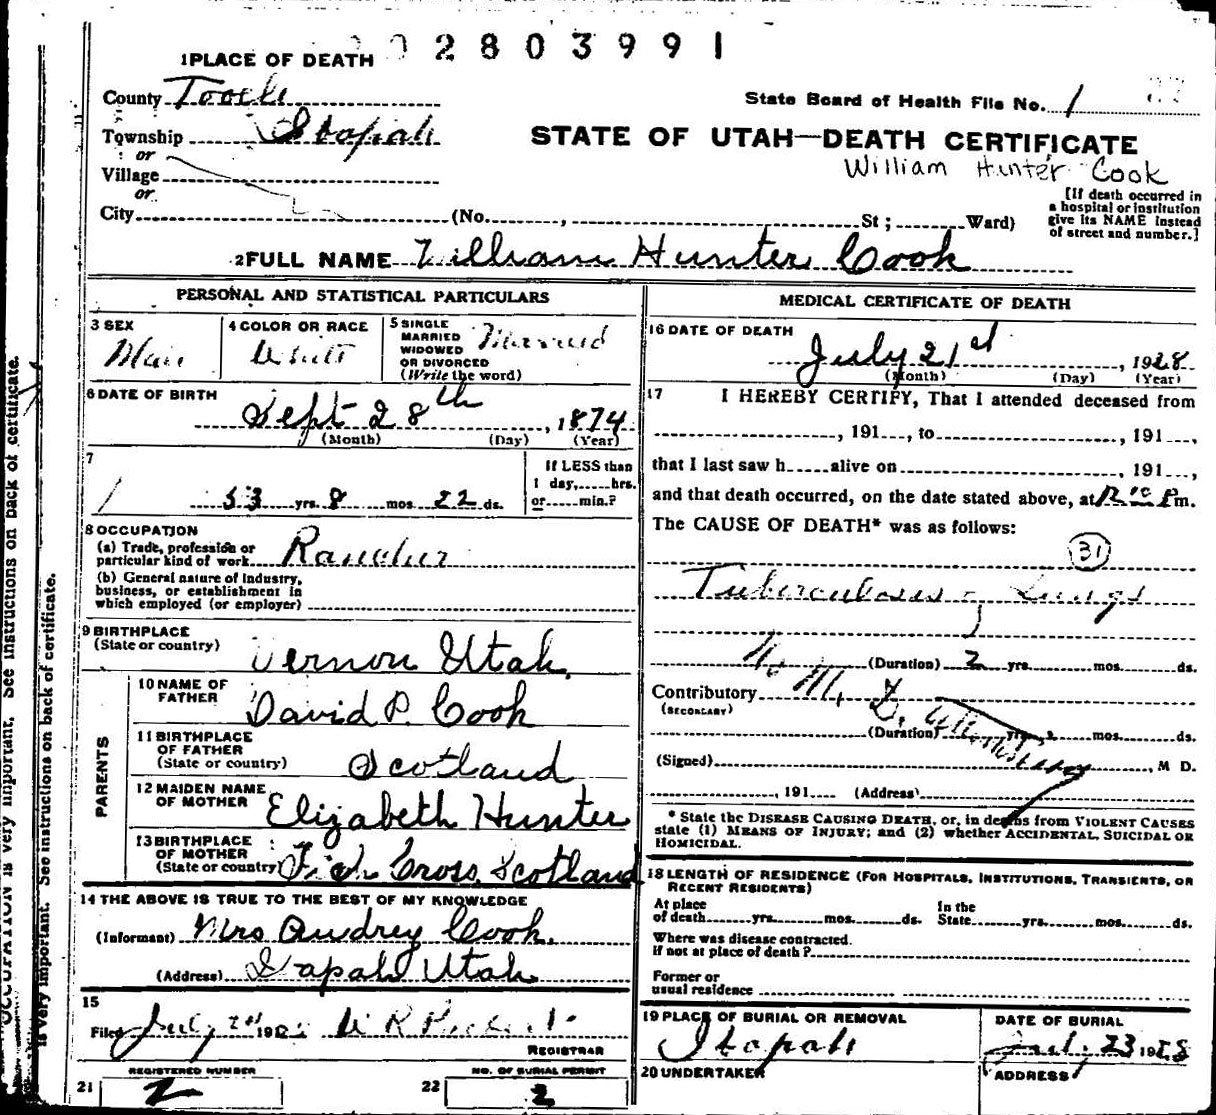 02803991
1 PLACE OF DEATH
County Tooele
State Board of Health File No. 1
Township Ibapah
or
STATE OF UTAH—DEATH CERTIFICATE
William Hunter Cook
Village
or
City (No. , St ; Ward)
[If death occurred in
a hospital or institution
give its NAME instead
of street and number.]
2 FULL NAME William Hunter Cook
PERSONAL AND STATISTICAL PARTICULARS
3 SEX
Male
4 COLOR OR RACE
White
5 SINGLE
MARRIED
WIDOWED
OR DIVORCED
(Write the word)
Married
6 DATE OF BIRTH
Sept 28th, 1874
(Month) (Day) (Year)
7
53 yrs. 8 mos. 22 ds.
If LESS than
1 day, hrs.
or min.?
8 OCCUPATION
(a) Trade, profession or
particular kind of work Rancher
(b) General nature of industry,
business, or establishment in
which employed (or employer)
9 BIRTHPLACE
(State or country)
Vernon Utah.
PARENTS
10 NAME OF
FATHER
David P. Cook
11 BIRTHPLACE
OF FATHER
(State or country)
Scotland
12 MAIDEN NAME
OF MOTHER
Elizabeth Hunter
13 BIRTHPLACE
OF MOTHER
(State or country)
Cross, Scotland
14 THE ABOVE IS TRUE TO THE BEST OF MY KNOWLEDGE
(Informant) Mrs Audrey Cook.
(Address) Utah
15
Filed July 192
REGISTRAR
REGISTERED NUMBER
21 2
NO. OF BURIAL PERMIT
22 2
MEDICAL CERTIFICATE OF DEATH
16 DATE OF DEATH
July 21st, 1928
(Month) (Day) (Year)
17 I HEREBY CERTIFY, That I attended deceased from
, 191 , to , 191 ,
that I last saw h alive on , 191 ,
and that death occurred, on the date stated above, at 12 P m.
The CAUSE OF DEATH* was as follows:
31
Tuberculosis of Lungs
(Duration) 2 yrs. mos. ds.
Contributory
(SECONDARY)
(Duration) yrs. mos. ds.
(Signed) , M D.
, 191 (Address)
* State the DISEASE CAUSING DEATH, or, in deaths from VIOLENT CAUSES
state (1) MEANS OF INJURY; and (2) whether ACCIDENTAL, SUICIDAL OR
HOMICIDAL.
18 LENGTH OF RESIDENCE (FOR HOSPITALS, INSTITUTIONS, TRANSIENTS, OR
RECENT RESIDENTS)
At place
of death yrs. mos. ds.
In the
State yrs. mos. ds.
Where was disease contracted.
if not at place of death?
Former or
usual residence
19 PLACE OF BURIAL OR REMOVAL
Ibapah
DATE OF BURIAL
July 23 1928
20 UNDERTAKER
ADDRESS
OCCUPATION is very important. See instructions on back of certificate.
is very important. See instructions on back of certificate.